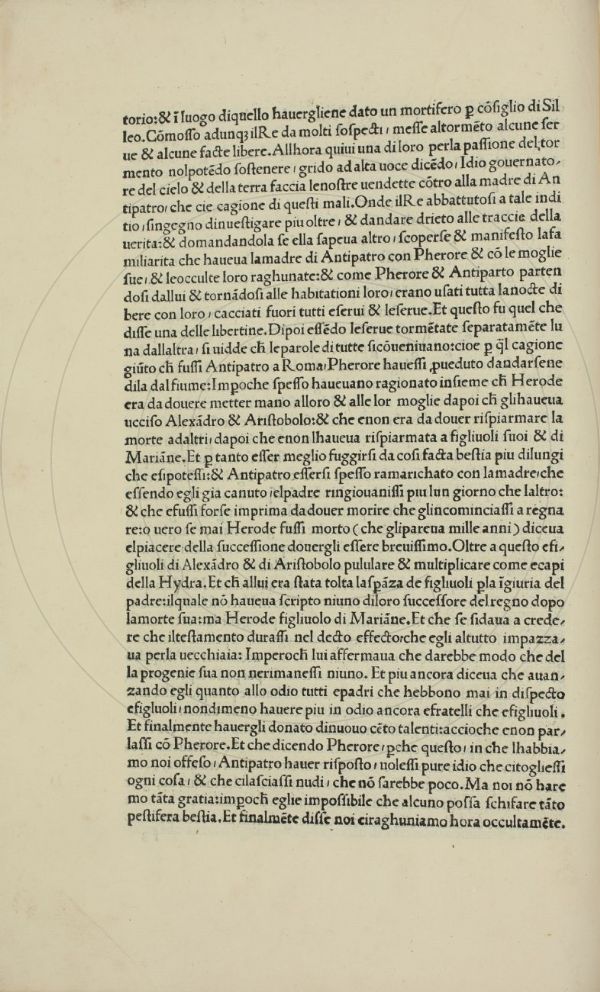 torio:& ī luogo diquello hauergliene dato un mortifero ꝑ cõſiglio di Sil
leo.Cõmoſſo adunqꝫ ilRe da molti ſoſpecti, meſſe altormẽto alcune ſer
ue & alcune facte libere. Allhora quiui una di loro perla paſſione del tor
mento nolpotẽdo ſoſtenere, grido ad alta uoce dicẽdo, Idio gouernato-
re del cielo & della terra faccia lenoſtre uendette cõtro alla madre di An
tipatro, che cie cagione di queſti mali. Onde ilRe abbattutoſi a tale indi
tio, ſingegno dinueſtigare piu oltre, & dandare drieto alle traccie della
uerita: & domandandola ſe ella ſapeua altro, ſcoperſe & manifeſto lafa
miliarita che haueua lamadre di Antipatro con Pherore & cõ le moglie
ſue, & leocculte loro raghunate: & come Pherore & Antiparto parten
doſi dallui & tornãdoſi alle habitationi loro, erano uſati tutta lanocte di
bere con loro, cacciati fuori tutti eſerui & leſerue. Et queſto fu quel che
diſſe una delle libertine. Dipoi eſſẽdo leſerue tormẽtate ſeparatamẽte lu
na dallaltra, ſi uidde ch̃ le parole di tutte ſicõueniuano: cioe ꝑ q̃l cagione
giũto ch̃ fuſſi Antipatro a Roma, Pherore haueſſi ꝓueduto dandarſene
dila dal fiume: Impoche ſpeſſo haueuano ragionato inſieme ch̃ Herode
era da douere metter mano alloro & alle lor moglie dapoi ch̃ gli haueua
ucciſo Alexãdro & Ariſtobolo: & che enon era da douer riſpiarmare la
morte adaltri, dapoi che enon lhaueua riſpiarmata a figliuoli ſuoi & di
Mariãne. Et ꝑ tanto eſſer meglio fuggirſi da coſi facta beſtia piu dilungi
che eſipoteſſi: & Antipatro eſſerſi ſpeſſo ramarichato con lamadre, che
eſſendo egli gia canuto, elpadre ringiouaniſſi piu lun giorno che laltro:
& che efuſſi forſe imprima da douer morire che glincominciaſſi a regna
re: o uero ſe mai Herode fuſſi morto (che glipareua mille anni) diceua
elpiacere della ſucceſſione douergli eſſere breuiſſimo. Oltre a queſto efi-
gliuoli di Alexãdro & di Ariſtobolo pululare & multiplicare come ecapi
della Hydra. Et ch̃ allui era ſtata tolta laſpãza de figliuoli ꝑla īgiuria del
padre: ilquale nõ haueua ſcripto niuno diloro ſucceſſore del regno dopo
lamorte ſua: ma Herode figliuolo di Mariãne. Et che ſe ſidaua a crede-
re che ilteſtamento duraſſi nel decto effectorche egli altutto impazza-
ua perla uecchiaia: Imperoch̃ lui affermaua che darebbe modo che del
la progenie ſua non nerimaneſſi niuno. Et piu ancora diceua che auan-
zando egli quanto allo odio tutti epadri che hebbono mai in diſpecto
efigliuoli, nondimeno hauere piu in odio ancora efratelli che efigliuoli.
Et finalmente hauergli donato dinuouo cẽto talenti: accioche enon par-
laſſi cõ Pherore. Et che dicendo Pherore, ꝑche queſto, in che lhabbia-
mo noi offeſo, Antipatro hauer riſpoſto, uoleſſi pure idio che citoglieſſi
ogni coſa, & che cilaſciaſſi nudi, che nõ ſarebbe poco. Ma noi nõ hare
mo tãta gratia: impoch̃ eglie impoſſibile che alcuno poſſa ſchifare tãto
peſtifera beſtia. Et finalmẽte diſſe noi ciraghuniamo hora occultamẽte.